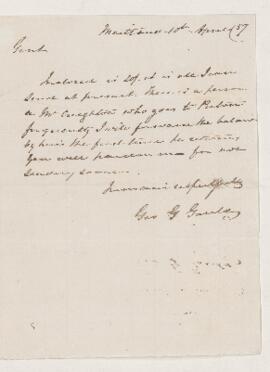 Maitland 10th April /57
Gent
Inclosed is 20£ it is all I can
send at present. There is a person
a Mr Creighton who goes to
frequently I will forward the balance
by him the first time he returns
You will pardon me for not
sending sooner
I remain respectfully
Geo G